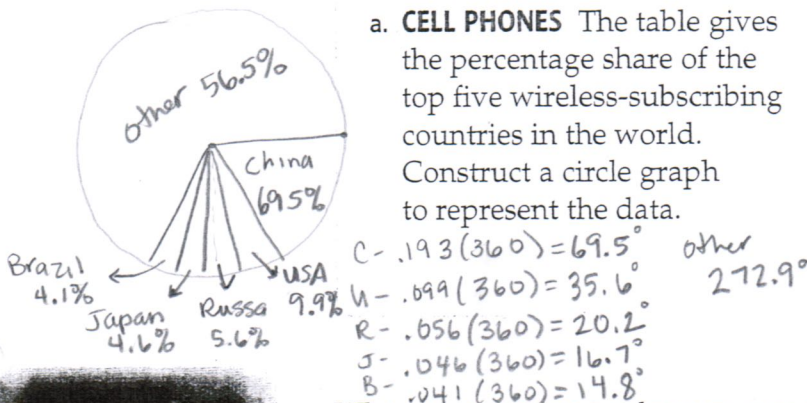 a. CELL PHONES The table gives
the percentage share of the
top five wireless-subscribing
countries in the world.
Construct a circle graph
to represent the data.
other 56.5%
China
69.5%
USA
9.9%
Russa
5.6%
Japan
4.6%
Brazil
4.1%
C- .193(360)=69.5°
U- .099(360)=35.6°
R- .056(360)=20.2°
J- .046(360)=16.7°
B- .041(360)=14.8°
other
272.9°